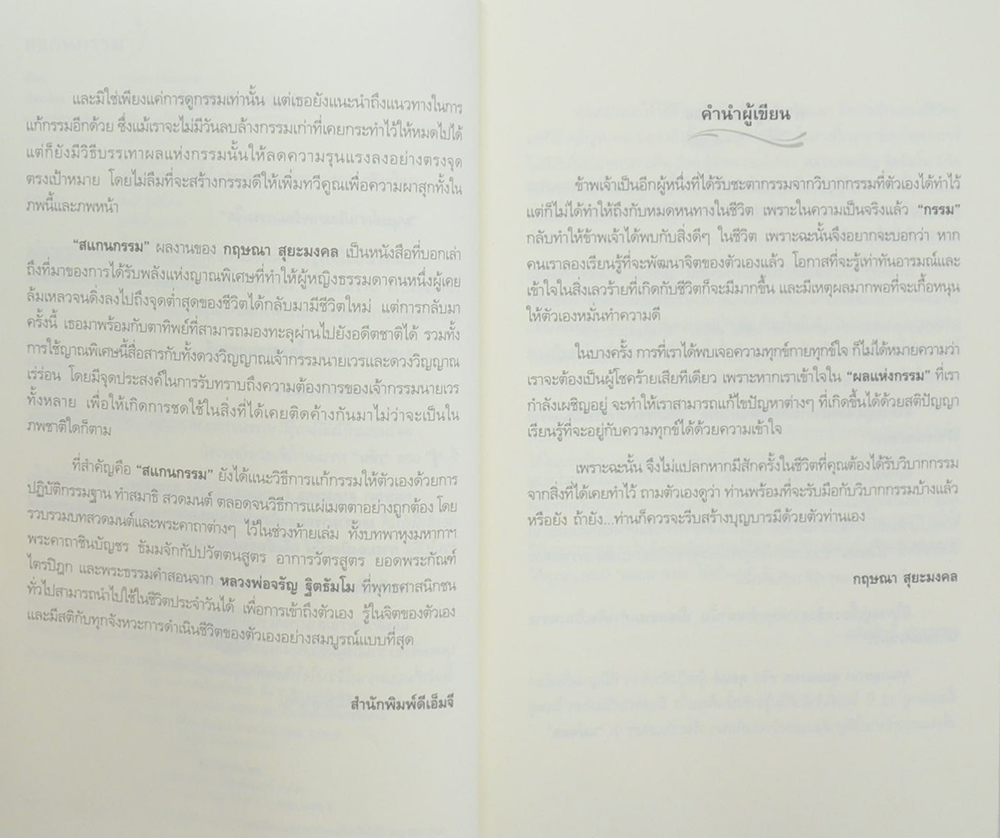 และมิใช่เพียงแค่การดูกรรมเท่านั้น แต่เธอยังแนะนำถึงแนวทางในการ
แก้กรรมอีกด้วย ซึ่งแม้เราจะไม่มีวันลบล้างกรรมเก่าที่เคยกระทำไว้ให้หมดไปได้
แต่ก็ยังมีวิธีบรรเทาผลแห่งกรรมนั้นให้ลดความรุนแรงลงอย่างตรงจุด
ตรงเป้าหมาย โดยไม่ลืมที่จะสร้างกรรมดีให้เพิ่มทวีคูณเพื่อความผาสุกทั้งใน
ภพนี้และภพหน้า
“สแกนกรรม” ผลงานของ กฤษณา สุยะมงคล เป็นหนังสือที่บอกเล่า
ถึงที่มาของการได้รับพลังแห่งญาณพิเศษที่ทำให้ผู้หญิงธรรมดาคนหนึ่งผู้เคย
ล้มเหลวจนดิ่งลงไปถึงจุดต่ำสุดของชีวิตได้กลับมามีชีวิตใหม่ แต่การกลับมา
ครั้งนี้ เธอมาพร้อมกับตาทิพย์ที่สามารถมองทะลุผ่านไปยังอดีตชาติได้ รวมทั้ง
การใช้ญาณพิเศษนี้สื่อสารกับทั้งดวงวิญญาณเจ้ากรรมนายเวรและดวงวิญญาณ
เร่ร่อน โดยมีจุดประสงค์ในการรับทราบถึงความต้องการของเจ้ากรรมนายเวร
ทั้งหลาย เพื่อให้เกิดการชดใช้ในสิ่งที่ได้เคยติดค้างกันมาไม่ว่าจะเป็นใน
ภพชาติใดก็ตาม
ที่สำคัญคือ “สแกนกรรม” ยังได้แนะวิธีการแก้กรรมให้ตัวเองด้วยการ
ปฏิบัติกรรมฐาน ทำสมาธิ สวดมนต์ ตลอดจนวิธีการแผ่เมตตาอย่างถูกต้อง โดย
รวบรวมบทสวดมนต์และพระคาถาต่างๆ ไว้ในช่วงท้ายเล่ม ทั้งบทพาหุงมหากาฯ
พระคาถาชินบัญชร ธัมมจักกัปปวัตตนสูตร อาการวัตรสูตร ยอดพระกัณฑ์
ไตรปิฎก และพระธรรมคำสอนจาก หลวงพ่อจรัญ ฐิตธัมโม ที่พุทธศาสนิกชน
ทั่วไปสามารถนำไปใช้ในชีวิตประจำวันได้ เพื่อการเข้าถึงตัวเอง รู้ในจิตของตัวเอง
และมีสติกับทุกจังหวะการดำเนินชีวิตของตัวเองอย่างสมบูรณ์แบบที่สุด
สำนักพิมพ์ดีเอ็มจี
คำนำผู้เขียน
ข้าพเจ้าเป็นอีกผู้หนึ่งที่ได้รับชะตากรรมจากวิบากกรรมที่ตัวเองได้ทำไว้
แต่ก็ไม่ได้ทำให้ถึงกับหมดหนทางในชีวิต เพราะในความเป็นจริงแล้ว “กรรม”
กลับทำให้ข้าพเจ้าได้พบกับสิ่งดีๆ ในชีวิต เพราะฉะนั้นจึงอยากจะบอกว่า หาก
คนเราลองเรียนรู้ที่จะพัฒนาจิตของตัวเองแล้ว โอกาสที่จะรู้เท่าทันอารมณ์และ
เข้าใจในสิ่งเลวร้ายที่เกิดกับชีวิตก็จะมีมากขึ้น และมีเหตุผลมากพอที่จะเกื้อหนุน
ให้ตัวเองหมั่นทำความดี
ในบางครั้ง การที่เราได้พบเจอความทุกข์กายทุกข์ใจ ก็ไม่ได้หมายความว่า
เราจะต้องเป็นผู้โชคร้ายเสียทีเดียว เพราะหากเราเข้าใจใน “ผลแห่งกรรม” ที่เรา
กำลังเผชิญอยู่ จะทำให้เราสามารถแก้ไขปัญหาต่างๆ ที่เกิดขึ้นได้ด้วยสติปัญญา
เรียนรู้ที่จะอยู่กับความทุกข์ได้ด้วยความเข้าใจ
เพราะฉะนั้น จึงไม่แปลกหากมีสักครั้งในชีวิตที่คุณต้องได้รับวิบากกรรม
จากสิ่งที่ได้เคยทำไว้ ถามตัวเองดูว่า ท่านพร้อมที่จะรับมือกับวิบากกรรมบ้างแล้ว
หรือยัง ถ้ายัง...ท่านก็ควรจะรีบสร้างบุญบารมีด้วยตัวท่านเอง
กฤษณา สุยะมงคล